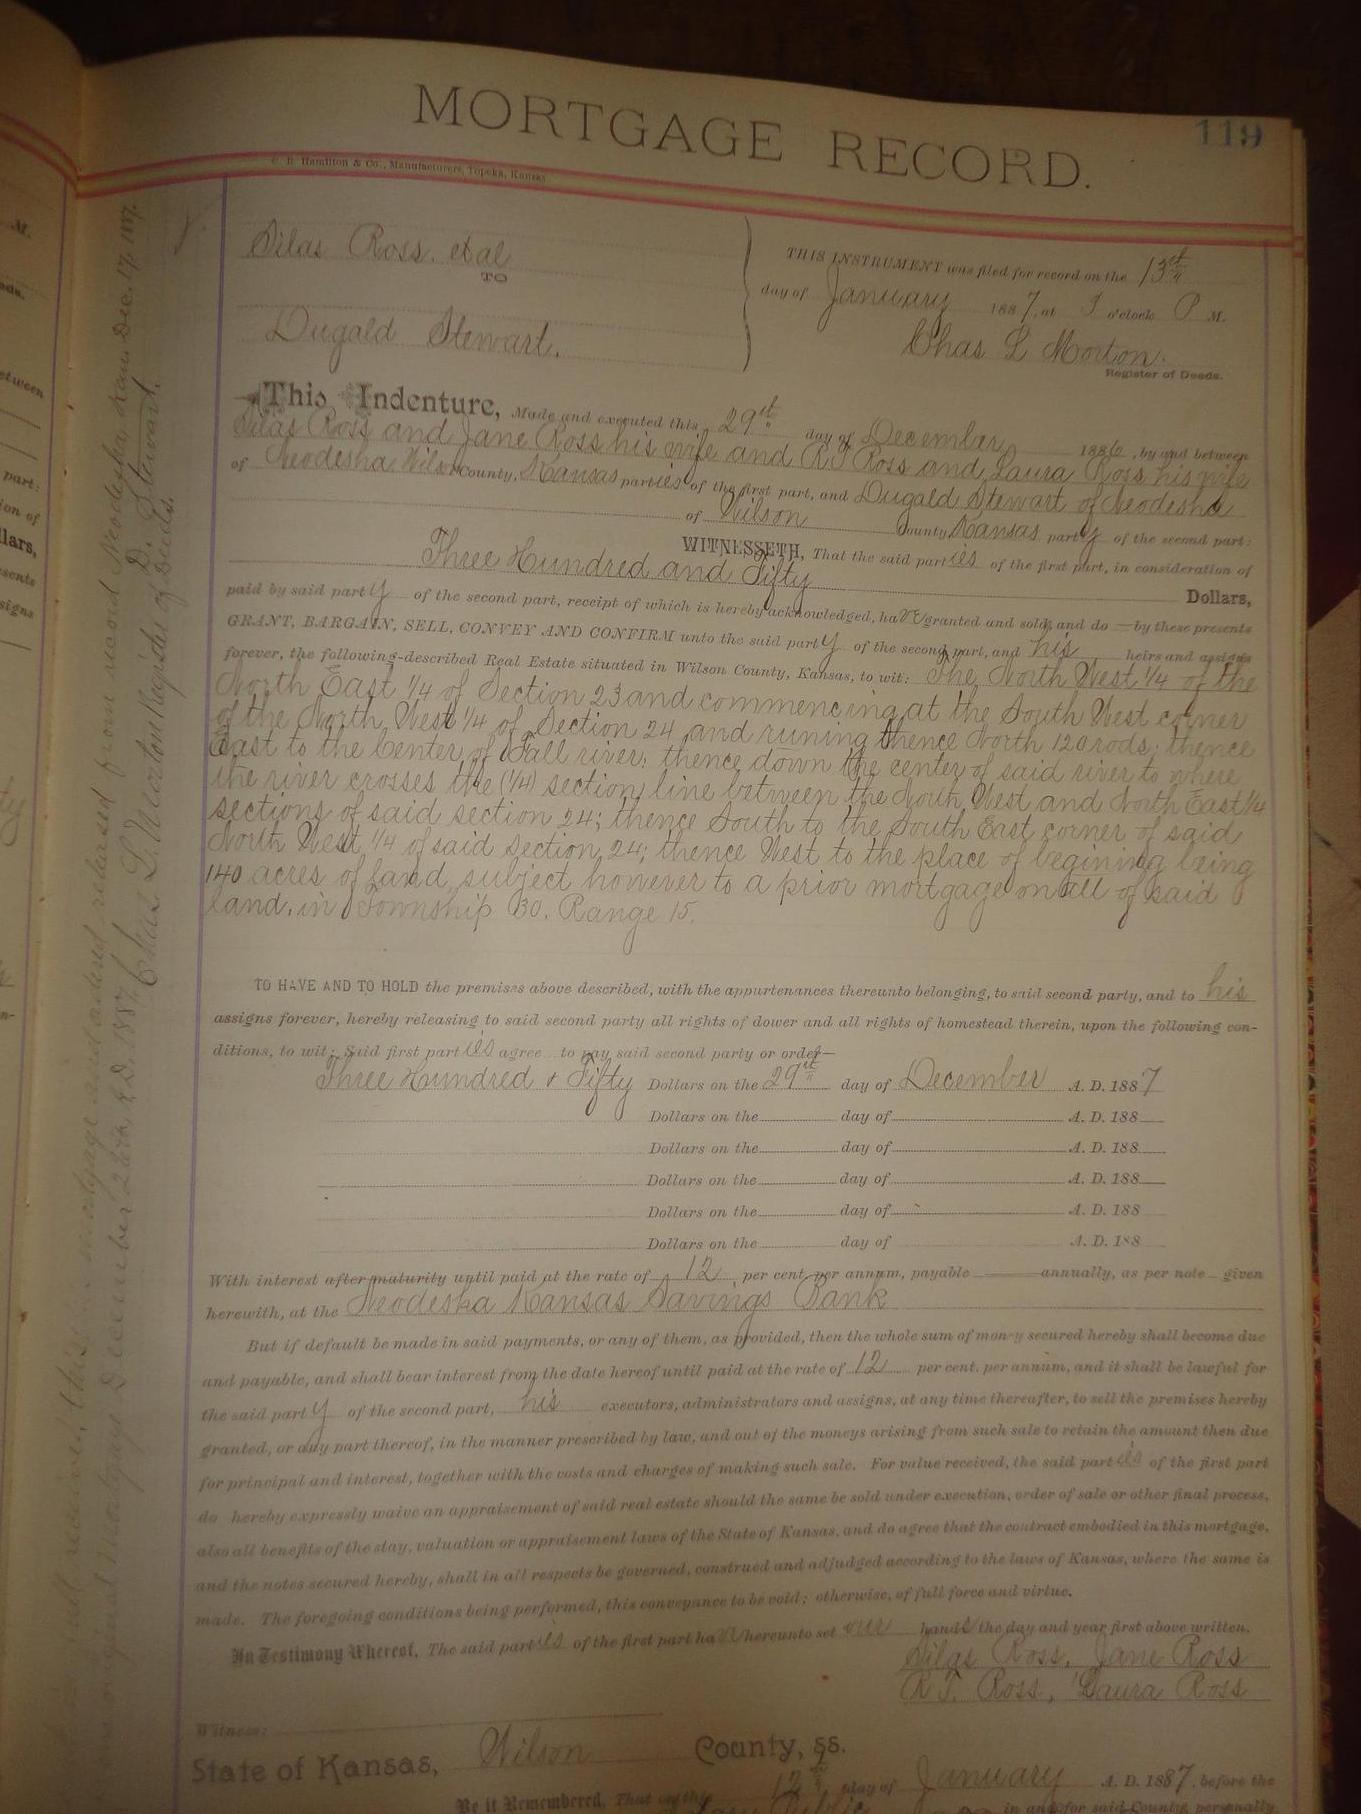 MORTGAGE RECORD.
119
C. B. Hamilton & Co., Manufacturers, Topeka, Kansas
Silas Ross. et al
TO
Dugald Stewart.
THIS INSTRUMENT was filed for record on the 13th
day of January 1887, at 3 o'clock P M.
Chas L Morton.
Register of Deeds.
This Indenture, Made and executed this 29th day of December 1886, by and between
Silas Ross and Jane Ross his wife and R.T. Ross and Laura Ross his wife
of Neodesha Wilson County, Kansas parties of the first part, and Dugald Stewart of Neodesha
of Wilson County Kansas party of the second part:
WITNESSETH, That the said parties of the first part, in consideration of
Three Hundred and Fifty Dollars,
paid by said party of the second part, receipt of which is hereby acknowledged, have granted and sold, and do by these presents
GRANT, BARGAIN, SELL, CONVEY AND CONFIRM unto the said party of the second part, and his heirs and assigns
forever, the following-described Real Estate situated in Wilson County, Kansas, to wit: The North West 1/4 of the
North East 1/4 of Section 23 and commencing at the South West corner
of the North West 1/4 of Section 24 and runing thence North 120 rods; thence
East to the Center of Fall river; thence down the center of said river to where
the river crosses the (1/4) section line between the North West and North East 1/4
sections of said section 24; thence South to the South East corner of said
North West 1/4 of said Section 24; thence West to the place of begining being
140 acres of land, subject however to a prior mortgage on all of said
land. in Township 30. Range 15.
TO HAVE AND TO HOLD the premises above described, with the appurtenances thereunto belonging, to said second party, and to his
assigns forever, hereby releasing to said second party all rights of dower and all rights of homestead therein, upon the following con-
ditions, to wit: Said first parties agree to pay said second party or order—
Three Hundred & Fifty Dollars on the 29th day of December A. D. 1887
Dollars on the day of A. D. 188
Dollars on the day of A. D. 188
Dollars on the day of A. D. 188
Dollars on the day of A. D. 188
Dollars on the day of A. D. 188
With interest after maturity until paid at the rate of 12 per cent. per annum, payable annually, as per note given
herewith, at the Neodesha Kansas Savings Bank
But if default be made in said payments, or any of them, as provided, then the whole sum of money secured hereby shall become due
and payable, and shall bear interest from the date hereof until paid at the rate of 12 per cent. per annum, and it shall be lawful for
the said party of the second part, his executors, administrators and assigns, at any time thereafter, to sell the premises hereby
granted, or any part thereof, in the manner prescribed by law, and out of the moneys arising from such sale to retain the amount then due
for principal and interest, together with the costs and charges of making such sale. For value received, the said parties of the first part
do hereby expressly waive an appraisement of said real estate should the same be sold under execution, order of sale or other final process,
also all benefits of the stay, valuation or appraisement laws of the State of Kansas, and do agree that the contract embodied in this mortgage,
and the notes secured hereby, shall in all respects be governed, construed and adjudged according to the laws of Kansas, where the same is
made. The foregoing conditions being performed, this conveyance to be void; otherwise, of full force and virtue.
In Testimony Whereof, The said parties of the first part have hereunto set our hands the day and year first above written.
Silas Ross, Jane Ross
R.T. Ross, Laura Ross
Witness:
State of Kansas, Wilson County, ss.
Be it Remembered, That on this 12th day of January A. D. 1887, before the
Public in and for said County, personally
mortgage and at released from record Neodesha, Kan. Dec. 17, 1887.
D. Stewart.
original Mortgage December 24th, A.D. 1887. Chas L. Morton Register of Deeds.